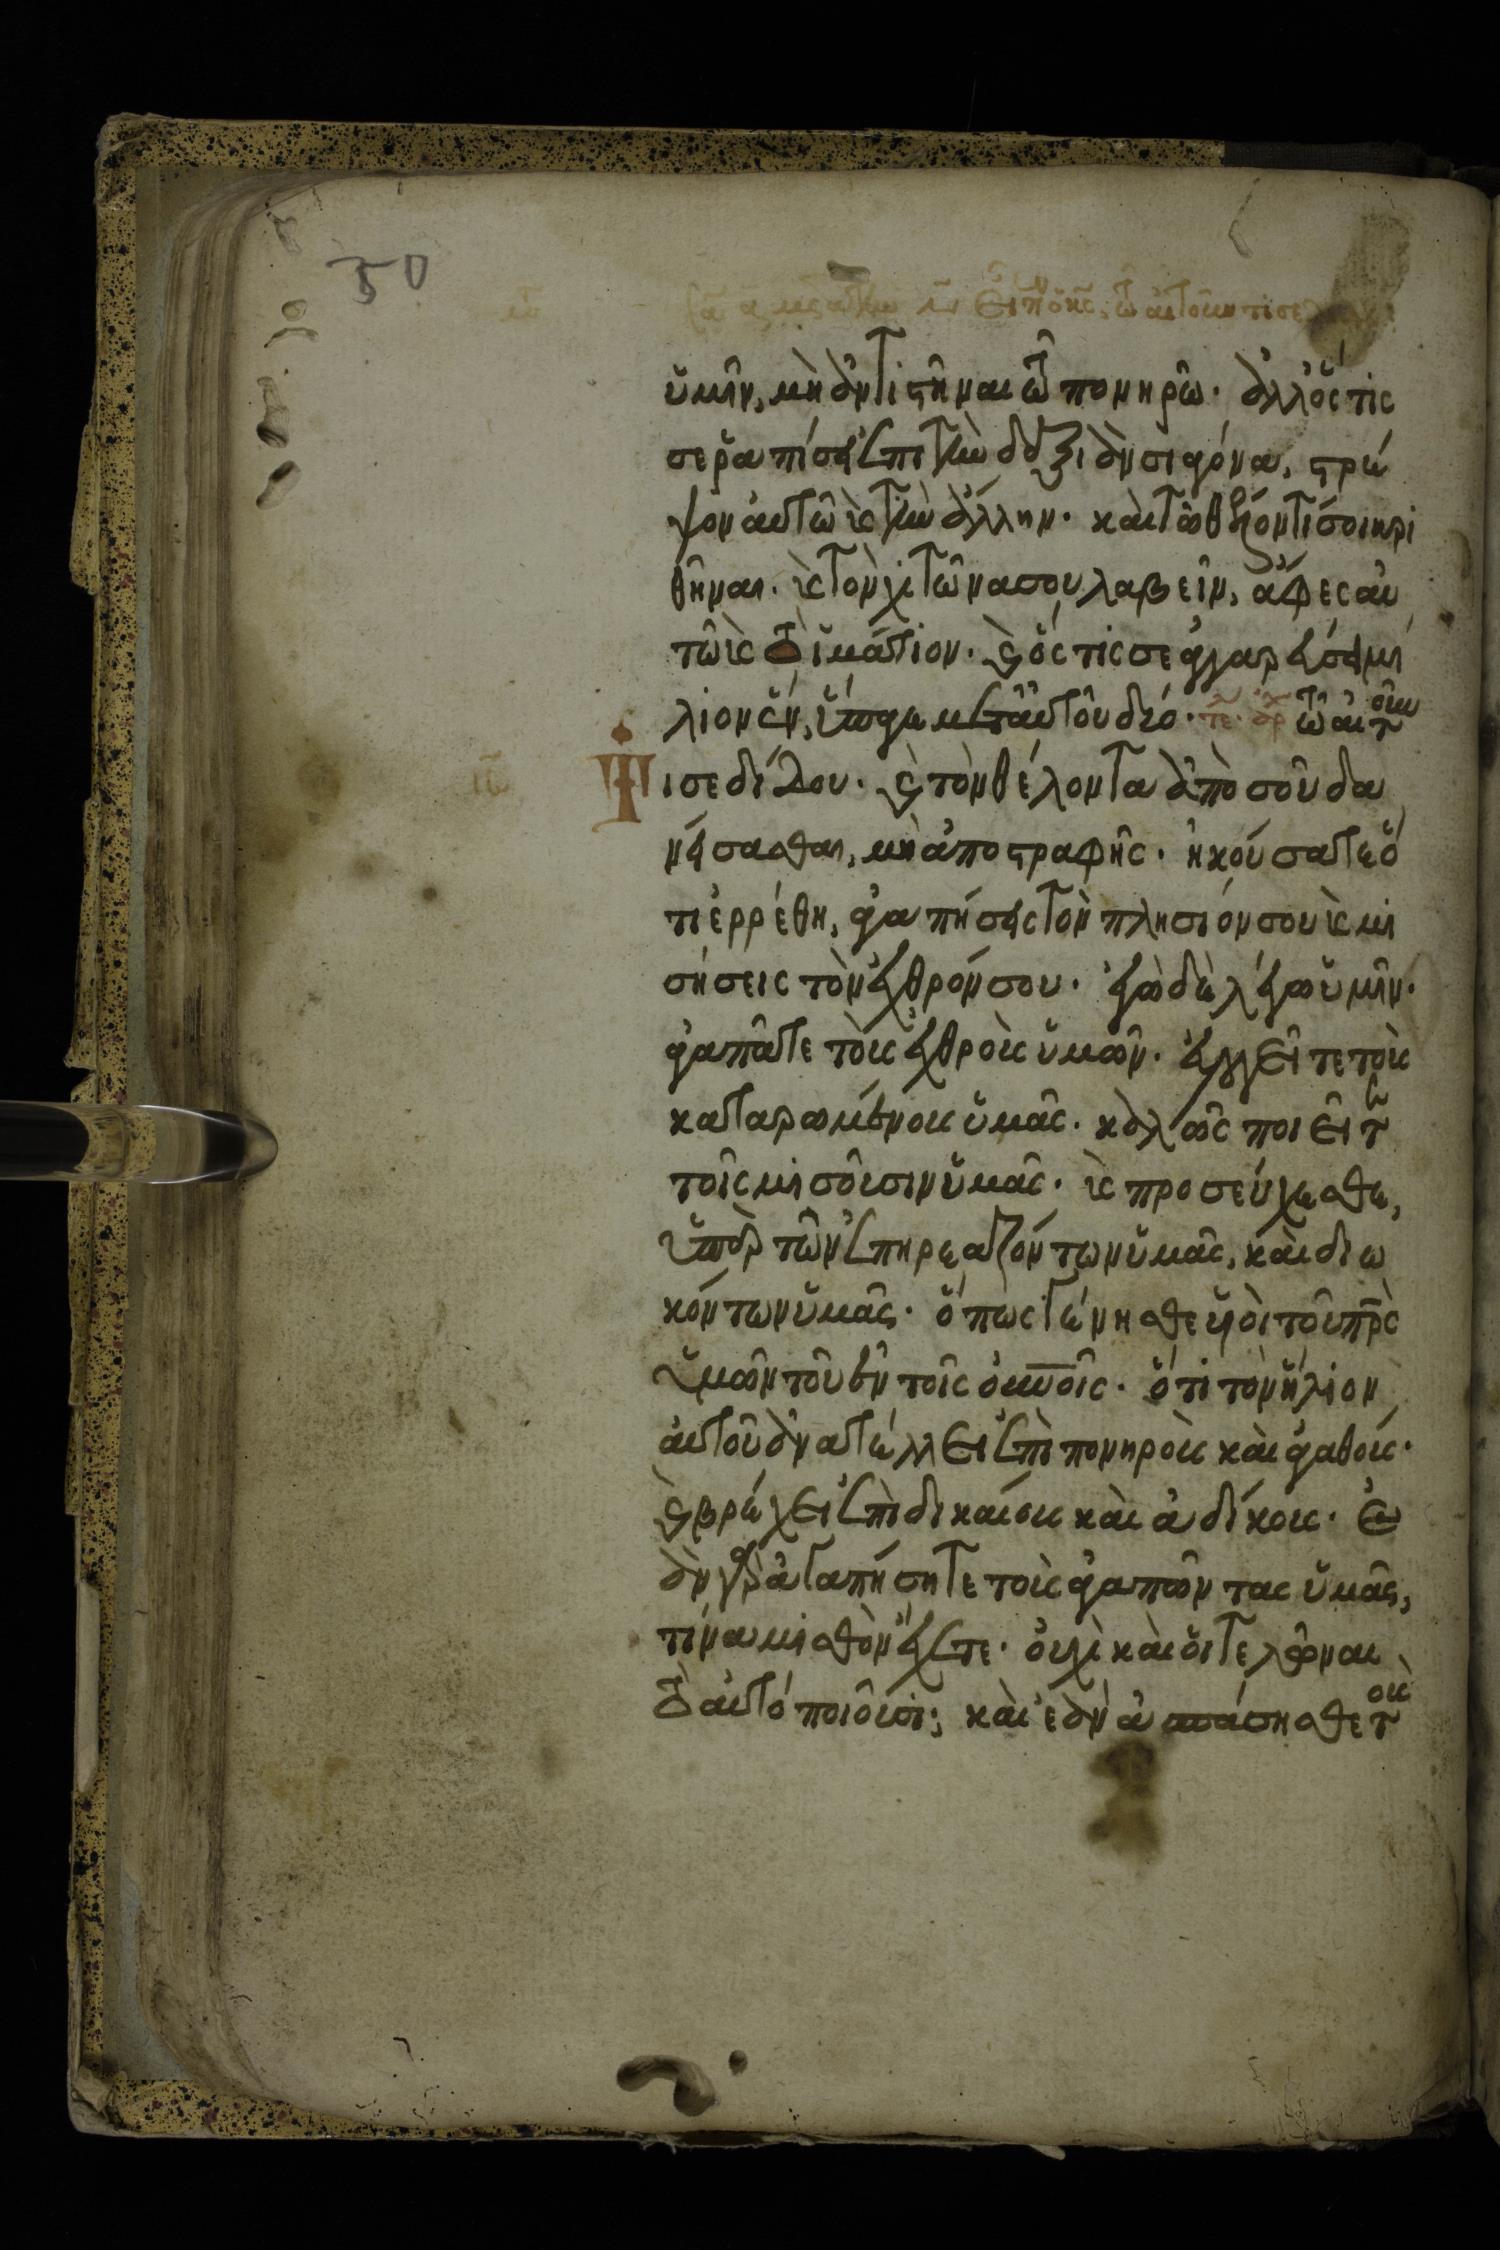 50
ὑμῖν, μὴ ἀντιστῆναι τῶ πονηρῶ· ἀλλ' ὅστις
σε ῥαπίσει ἐπὶ τὴν δεξιὰν σιαγόνα, στρέ
ψον αὐτῶ καὶ τὴν ἄλλην· καὶ τῶ θέλοντί σοι κρι
θῆναι· καὶ τὸν χιτῶνα σου λαβεῖν, ἄφες αὐ
τῶ καὶ τὸ ἱμάτιον· καὶ ὅστις σε ἀγγαρεύσει μί
λιον ἕν, ὕπαγε μετ' αὐτοῦ δύο· τε αρ τῶ αἰτοῦν
Τι σε δίδου· καὶ τὸν θέλοντα ἀπὸ σοῦ δα
νείσασθαι, μὴ ἀποστραφῆς· ἠκούσατε ὅ
τι ἐρρέθη, ἀγαπήσεις τὸν πλησίον σου καὶ μι
σήσεις τὸν ἐχθρόν σου· ἐγὼ δὲ λέγω ὑμῖν·
ἀγαπᾶτε τοὺς ἐχθροὺς ὑμῶν· εὐλογεῖτε τοὺς
καταρωμένους ὑμᾶς· καλῶς ποιεῖτε
τοῖς μισοῦσιν ὑμᾶς· καὶ προσεύχεσθε,
ὑπὲρ τῶν ἐπηρεαζόντων ὑμᾶς, καὶ διω
κόντων ὑμᾶς· ὅπως γένησθε υἱοὶ τοῦ πρς
ὑμῶν τοῦ ἐν τοῖς οὐνοῖς· ὅτι τὸν ἥλιον
αὐτοῦ ἀνατέλλει ἐπὶ πονηροὺς καὶ ἀγαθούς·
καὶ βρέχει ἐπὶ δικαίους καὶ ἀδίκους· ἐ
ὰν γὰρ ἀγαπήσητε τοὺς ἀγαπῶντας ὑμᾶς,
τίνα μισθὸν ἔχετε· οὐχὶ καὶ οἱ τελῶναι
τὸ αὐτό ποιοῦσι; καὶ ἐὰν ἀσπάσησθε τοὺς